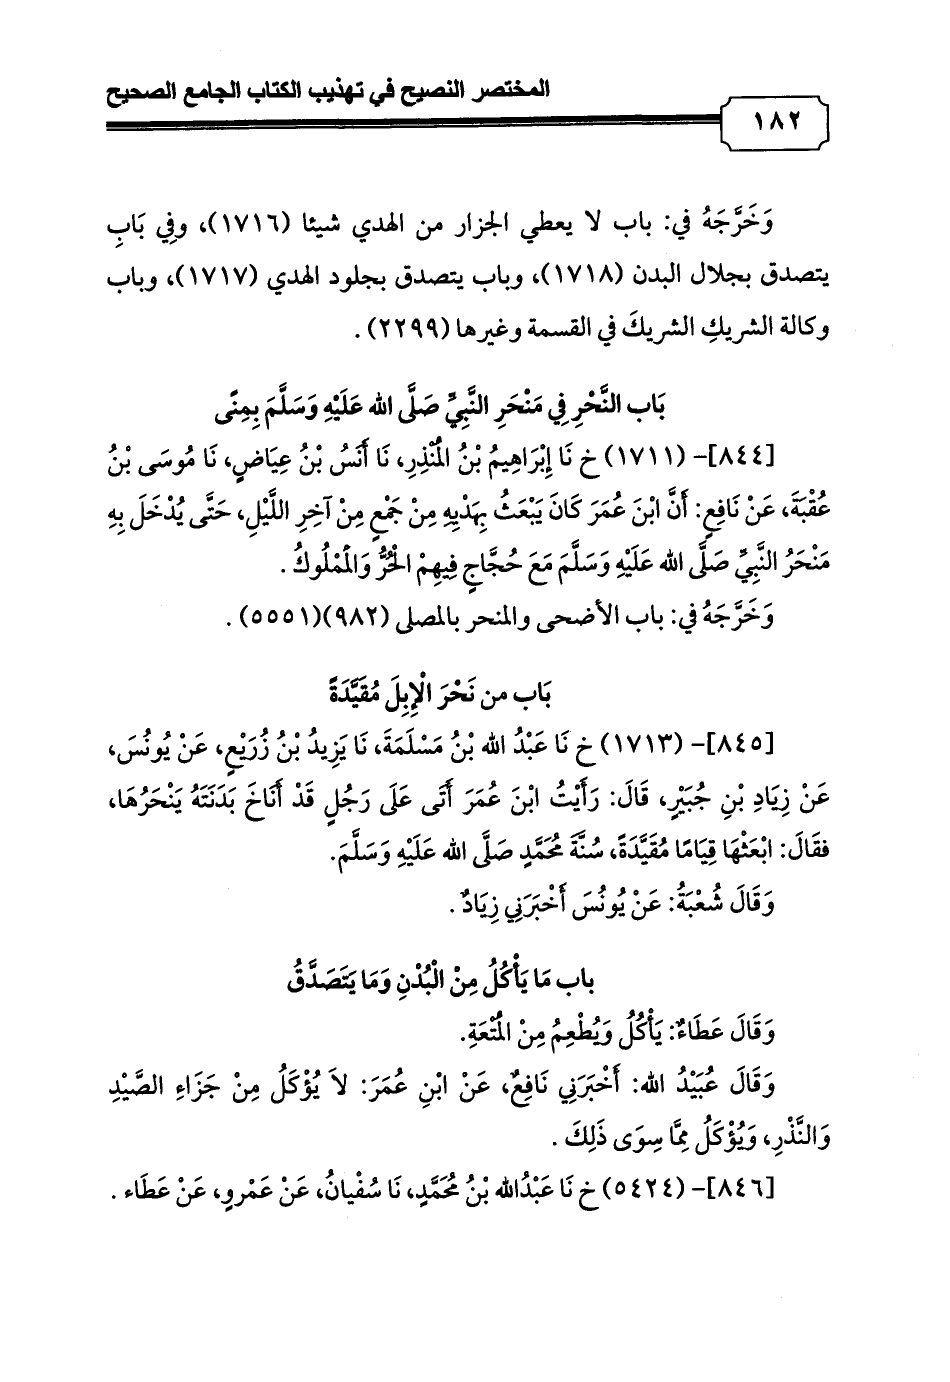 المختصر النصيح في تهذيب الكتاب الجامع الصحيح
١٨٢
وَخَرَّجَهُ في: باب لا يعطي الجزار من الهدي شيئا (١٧١٦)، وفِي بَابِ
يتصدق بجلال البدن (١٧١٨)، وباب يتصدق بجلود الهدي (١٧١٧)، وباب
وكالة الشريكِ الشريكَ في القسمة وغيرها (٢٢٩٩).
بَاب النَّحْرِ فِي مَنْحَرِ النَّبِيِّ صَلَّى الله عَلَيْهِ وَسَلَّمَ بِمِنًى
[٨٤٤]- (١٧١١) خ نَا إِبْرَاهِيمُ بْنُ الْمُنْذِرِ، نَا أَنَسُ بْنُ عِيَاضٍ، نَا مُوسَى بْنُ
عُقْبَةَ، عَنْ نَافِعٍ: أَنَّ ابْنَ عُمَرَ كَانَ يَبْعَثُ بِهَدْيِهِ مِنْ جَمْعٍ مِنْ آخِرِ اللَّيْلِ، حَتَّى يُدْخَلَ بِهِ
مَنْحَرُ النَّبِيِّ صَلَّى الله عَلَيْهِ وَسَلَّمَ مَعَ حُجَّاجٍ فِيهِمْ الْحُرُّ وَالْمَمْلُوكُ.
وَخَرَّجَهُ في: باب الأضحى والمنحر بالمصلى (٩٨٢)(٥٥٥١).
بَاب من نَحْرَ الْإِبِلَ مُقَيَّدَةً
[٨٤٥]- (١٧١٣) خ نَا عَبْدُ الله بْنُ مَسْلَمَةَ، نَا يَزِيدُ بْنُ زُرَيْعٍ، عَنْ يُونُسَ،
عَنْ زِيَادِ بْنِ جُبَيْرٍ، قَالَ: رَأَيْتُ ابْنَ عُمَرَ أَتَى عَلَى رَجُلٍ قَدْ أَنَاخَ بَدَنَتَهُ يَنْحَرُهَا،
فقَالَ: ابْعَثْهَا قِيَامًا مُقَيَّدَةً، سُنَّةَ مُحَمَّدٍ صَلَّى الله عَلَيْهِ وَسَلَّمَ.
وَقَالَ شُعْبَةُ: عَنْ يُونُسَ أَخْبَرَنِي زِيَادٌ.
باب مَا يَأْكُلُ مِنْ الْبُدْنِ وَمَا يَتَصَدَّقُ
وَقَالَ عَطَاءٌ: يَأْكُلُ وَيُطْعِمُ مِنْ الْمُتْعَةِ.
وَقَالَ عُبَيْدُ الله: أَخْبَرَنِي نَافِعٌ، عَنْ ابْنِ عُمَرَ: لاَ يُؤْكَلُ مِنْ جَزَاءِ الصَّيْدِ
وَالنَّذْرِ، وَيُؤْكَلُ مِمَّا سِوَى ذَلِكَ.
[٨٤٦]- (٥٤٢٤) خ نَا عَبْدُالله بْنُ مُحَمَّدٍ، نَا سُفْيانُ، عَنْ عَمْرٍو، عَنْ عَطَاء.